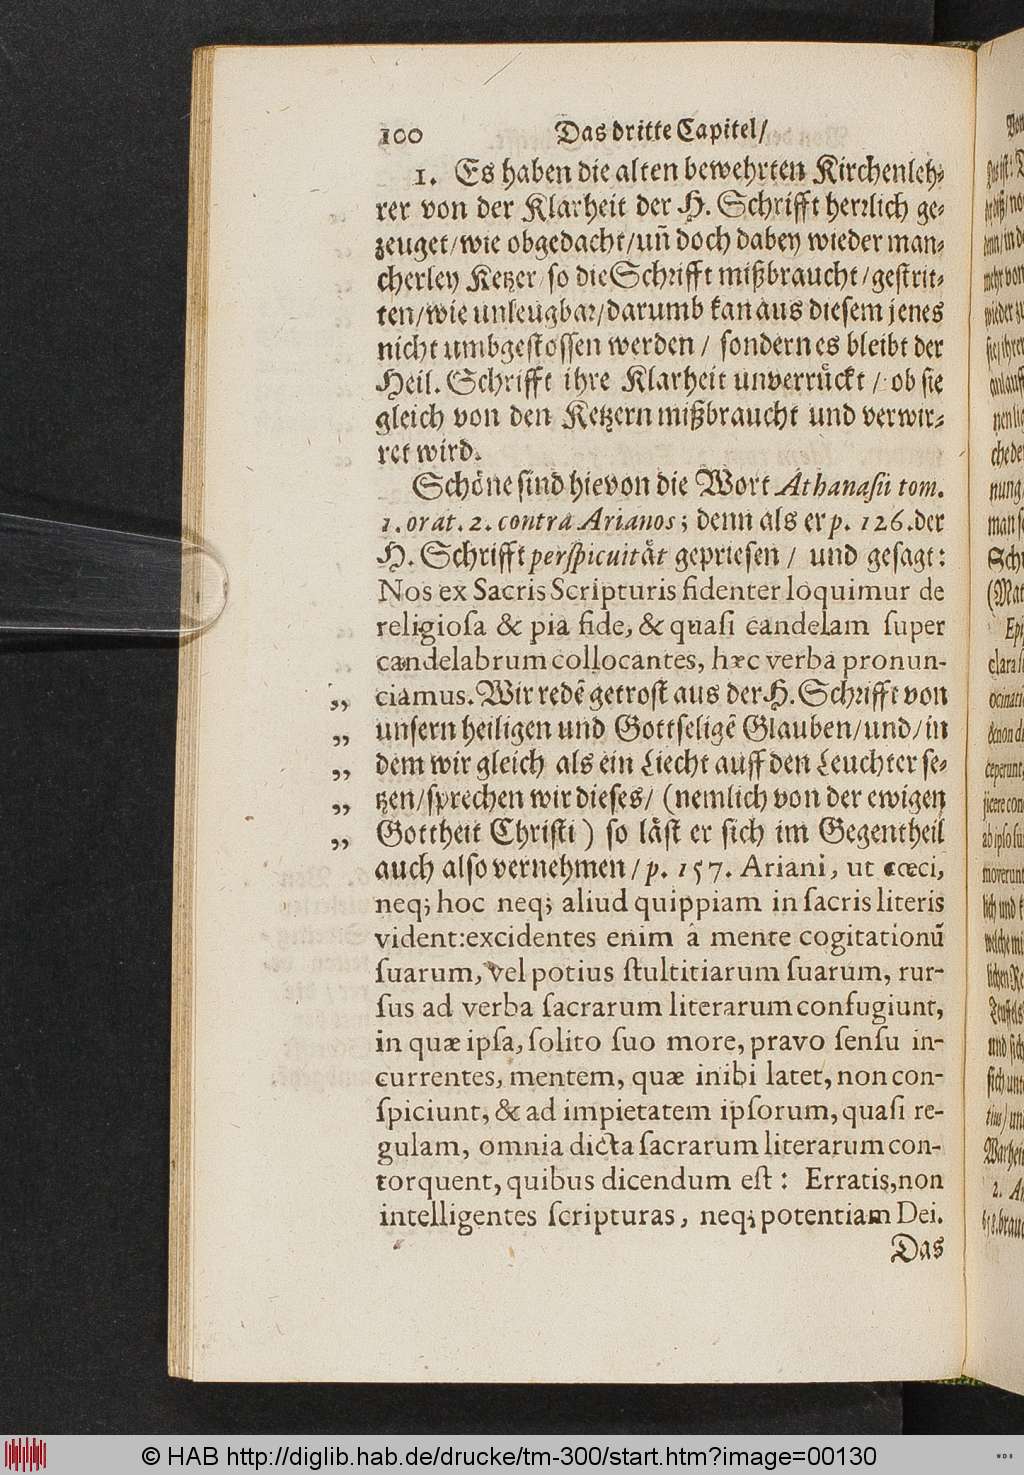 100 Das dritte Capitel/
1. Es haben die alten bewehrten Kirchenleh⸗
rer von der Klarheit der H. Schrifft herꝛlich ge⸗
zeuget/wie obgedacht/uñ doch dabey wieder man⸗
cherley Ketzer/so die Schrifft mißbraucht/gestrit⸗
ten/wie unleugbar/darumb kan aus diesem jenes
nicht umbgestossen werden / sondern es bleibt der
Heil. Schrifft ihre Klarheit unverrückt / ob sie
gleich von den Ketzern mißbraucht und verwir⸗
ret wird.
Schöne sind hievon die Wort Athanasii tom.
1. orat. 2. contra Arianos; denn als er p. 126. der
H. Schrifft perſpicuität gepriesen / und gesagt:
Nos ex Sacris Scripturis fidenter loquimur de
religioſa & piâ fide, & quaſi candelam ſuper
candelabrum collocantes, hæc verba pronun-
„ ciamus. Wir redē getrost aus der H. Schrifft von
„ unsern heiligen und Gottseligē Glauben/und/in
„ dem wir gleich als ein Liecht auff den Leuchter se⸗
„ tzen/sprechen wir dieses/ (nemlich von der ewigen
„ Gottheit Christi) so läst er sich im Gegentheil
auch also vernehmen / p. 157. Ariani, ut cœci,
neq; hoc neq; aliud quippiam in ſacris literis
vident: excidentes enim â mente cogitationū
ſuarum, vel potius ſtultitiarum ſuarum, rur-
ſus ad verba ſacrarum literarum confugiunt,
in quæ ipſa, ſolito ſuo more, pravo ſenſu in-
currentes, mentem, quæ inibi latet, non con-
ſpiciunt, & ad impietatem ipſorum, quaſi re-
gulam, omnia dicta ſacrarum literarum con-
torquent, quibus dicendum eſt: Erratis, non
intelligentes ſcripturas, neq; potentiam Dei.
Das
© HAB http://diglib.hab.de/drucke/tm-300/start.htm?image=00130